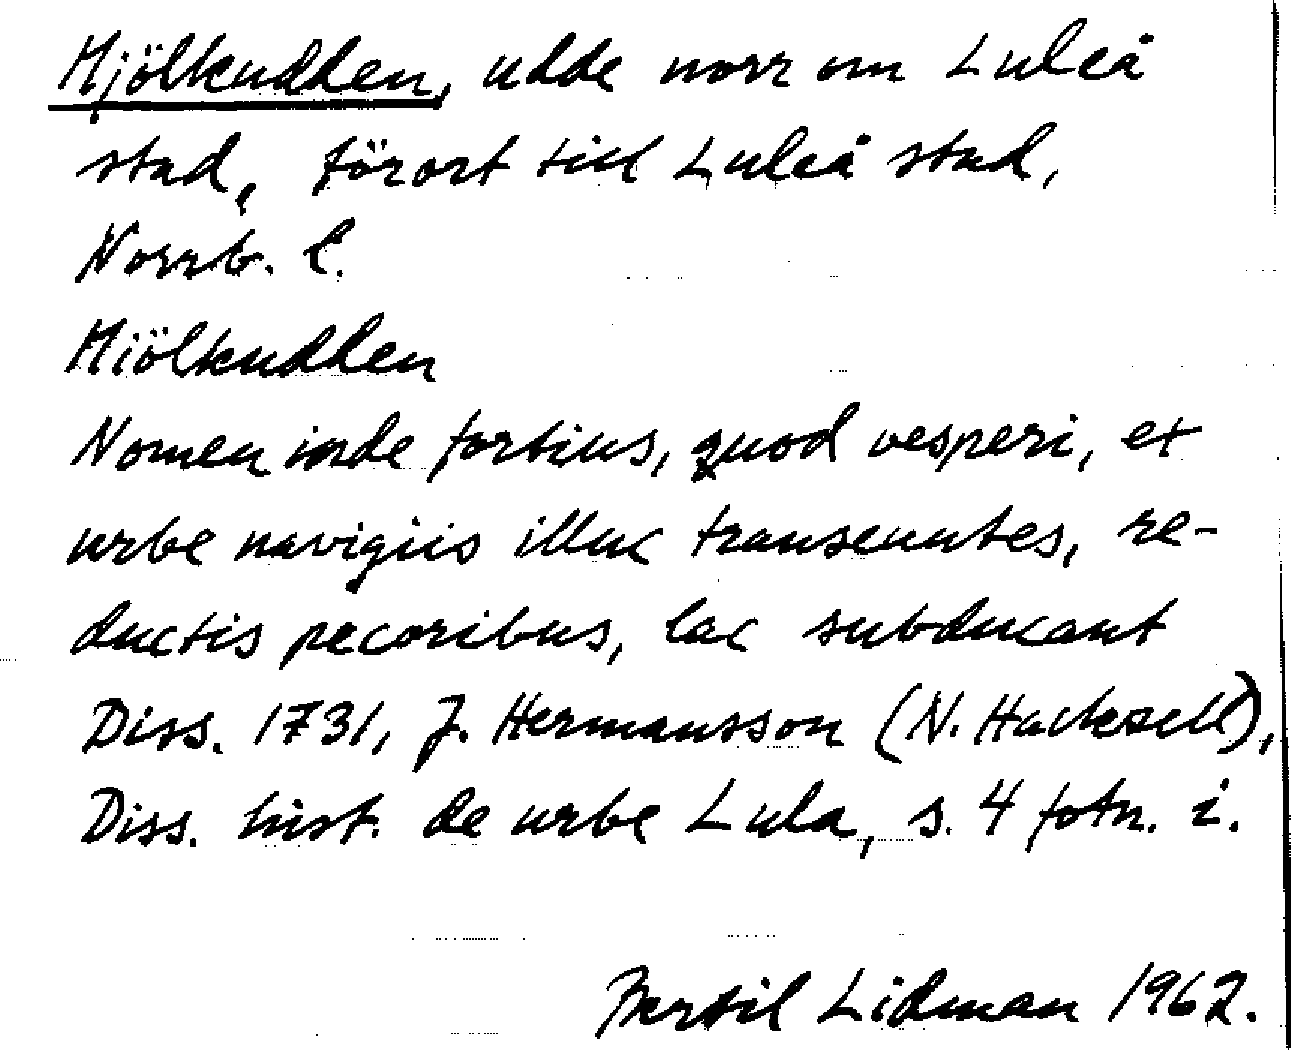 Mjölkudden, udde norr om Luleå
stad, förort till Luleå stad,
Norrb. l.
Miölkudden
Nomen inde fortius, quod vesperi, ex
urbe navigiis illuc transeuntes, re-
ductis pecoribus, lac subducant
Diss. 1731, J. Hermansson (N. Hackzell),
Diss. hist. de urbe Lula, s. 4 fotn. i.
Bertil Lidman 1962.